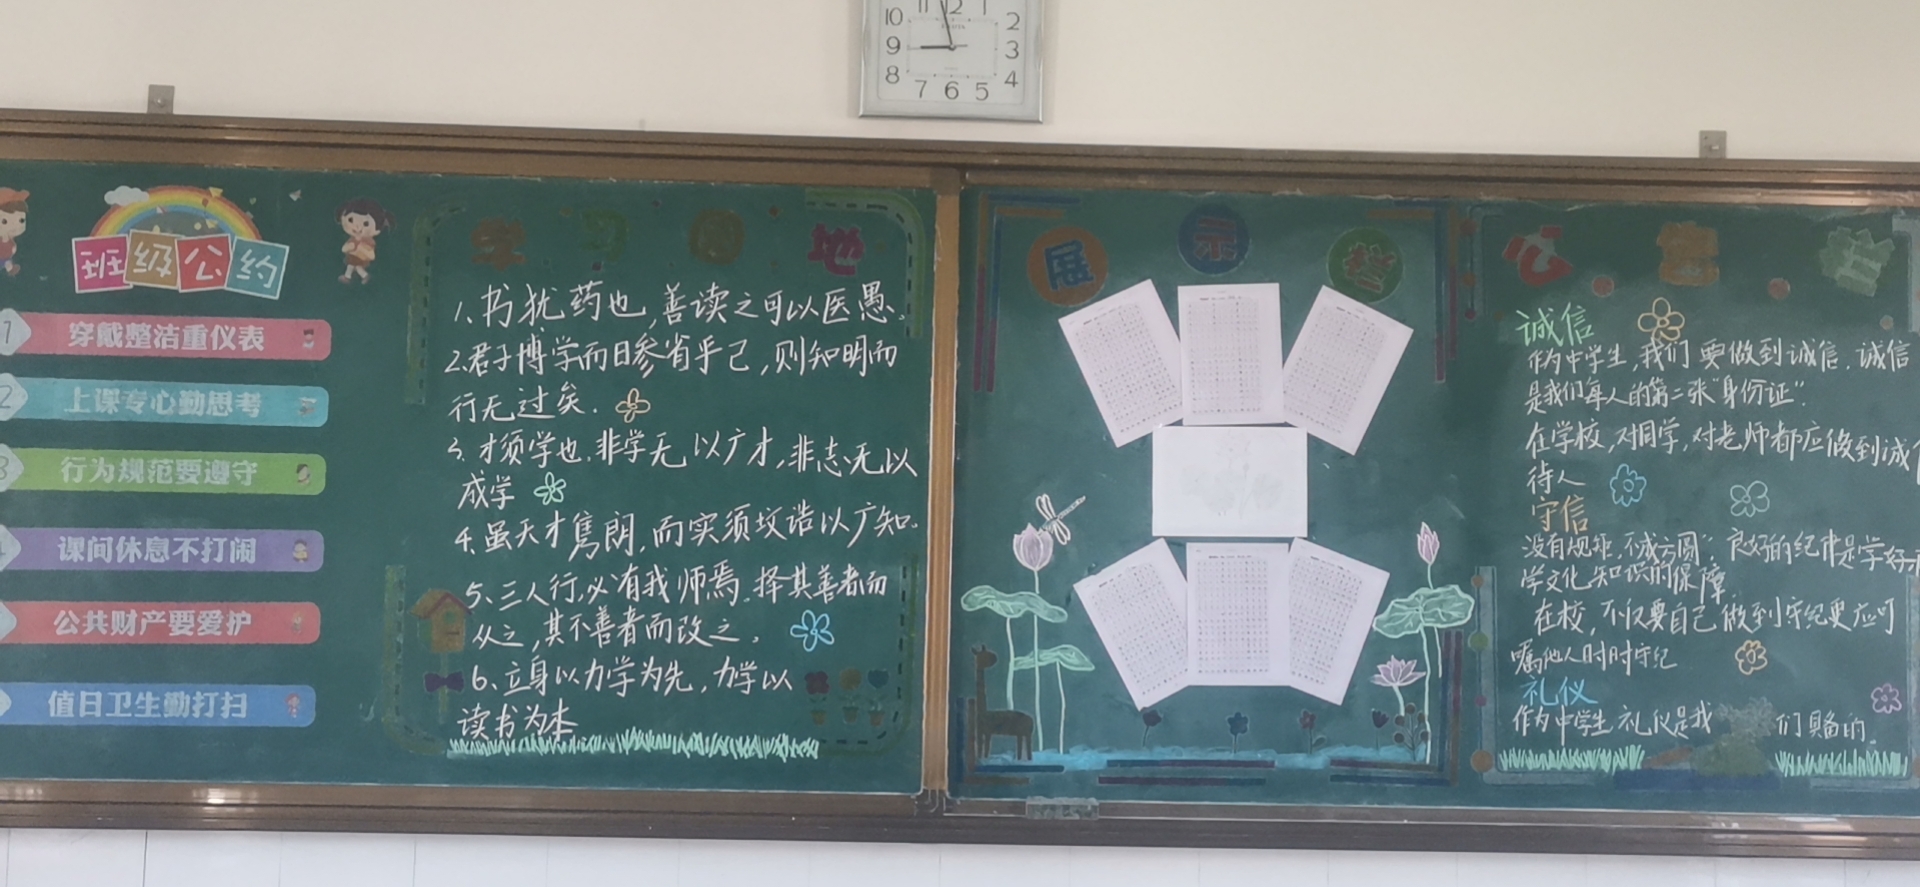 11 12 1
10 2
9 3
8 4
7 6 5
班级公约
1 穿戴整洁重仪表
2 上课专心勤思考
3 行为规范要遵守
课间休息不打闹
公共财产要爱护
值日卫生勤打扫
学习园地
1、书犹药也，善读之可以医愚。
2.君子博学而日参省乎己，则知明而
行无过矣.
3.才须学也.非学无以广才，非志无以
成学
4.虽天才隽朗，而实须坟诰以广知.
5、三人行，必有我师焉.择其善者而
从之，其不善者而改之。
6、立身以力学为先，力学以
读书为本
展示栏
诚信
作为中学生，我们要做到诚信.诚信
是我们每人的第二张“身份证”.
在学校，对同学，对老师都应做到诚
待人
守信
没有规矩，不成方圆”，良好的纪律是学好
学文化知识的保障.
在校，不仅要自己做到守纪更应叮
嘱他人时时守纪
礼仪
作为中学生礼仪是我们具备的.